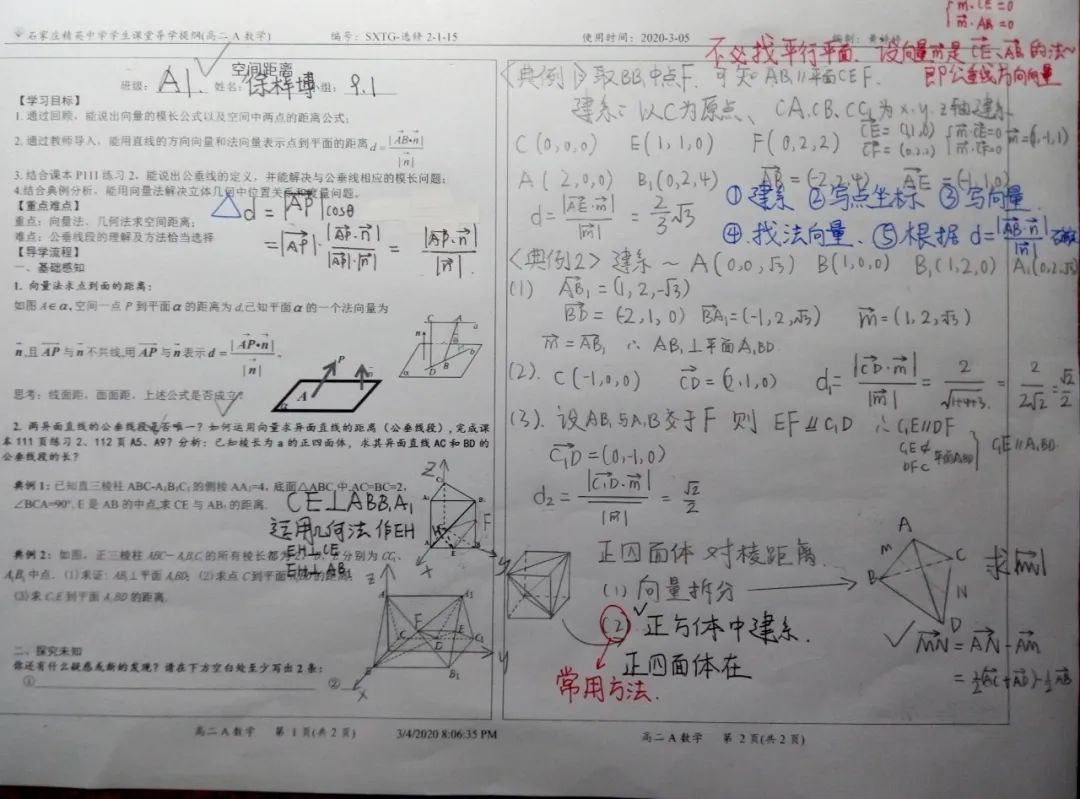 石家庄精英中学学生课堂导学提纲(高二 A 数学)
编号：SXTG-选修 2-1-15
使用时间：2020-3-05
空间距离
班级： A1 姓名： 小组： 9.1
【学习目标】
1.通过回顾，能说出向量的模长公式以及空间中两点的距离公式;
2.通过教师导入，能用直线的方向向量和法向量表示点到平面的距离 d=|AB•n|/|n|
3.结合课本 P111 练习 2，能说出公垂线的定义，并能解决与公垂线相应的模长问题;
4.结合典例分析，能用向量法解决立体几何中位置关系和度量问题。
【重点难点】
重点：向量法、几何法求空间距离;
难点：公垂线段的理解及方法恰当选择
△ d=|AP|cosθ
=|AP|·|AP·n|/|AP|·|n| = |AP·n|/|n|.
【导学流程】
一、基础感知
1. 向量法求点到面的距离:
如图 A∈α,空间一点 P 到平面 α 的距离为 d,已知平面 α 的一个法向量为
n,且 AP 与 n 不共线,用 AP 与 n 表示 d=|AP•n|/|n|。
思考：线面距，面面距，上述公式是否成立?
2. 两异面直线的公垂线段是否唯一？如何运用向量求异面直线的距离（公垂线段）,完成课
本 111 页练习 2、112 页 A5、A9？分析：已知棱长为 a 的正四面体，求其异面直线 AC 和 BD 的
公垂线段的长？
典例 1：已知直三棱柱 ABC-A₁B₁C₁ 的侧棱 AA₁=4，底面△ABC 中,AC=BC=2,
∠BCA=90°, E 是 AB 的中点,求 CE 与 AB₁ 的距离.
CE⊥ABB₁A₁
运用几何法 作EH
EH⊥CE
EH⊥AB₁
典例 2：如图，正三棱柱 ABC—A₁B₁C₁ 的所有棱长都为 2, D、E 分别为 CC₁、
A₁B₁ 中点.（1)求证：AB₁⊥平面 A₁BD；(2)求点 C 到平面 A₁BD 的距离;
(3)求 C₁E 到平面 A₁BD 的距离.
二、探究未知
你还有什么疑惑或新的发现？请在下方空白处至少写出 2 条：
① ②
高二 A 数学 第 1 页(共 2 页) 3/4/2020 8:06:35 PM
m·CE=0
m·AB₁=0
不必找平行平面. 设向量m是CE、AB₁的法~
即公垂线方向向量
<典例1>取BB₁中点F. 可知AB₁∥平面CEF.
建系：以C为原点、CA,CB,CC₁为x.y.z轴建系
C(0,0,0) E(1,1,0) F(0,2,2) CE=(1,1,0) CF=(0,2,2) m·CE=0 m·CF=0 m=(1,-1,1)
A(2,0,0) B₁(0,2,4) AB₁=(-2,2,4) AE=(-1,1,0)
d=|AE·m|/|m| = 2/3√3
①建系 ②写点坐标 ③写向量
④找法向量. ⑤根据 d=|AB·n|/|n|
<典例2> 建系~ A(0,0,√3) B(1,0,0) B₁(1,2,0) A₁(0,2,√3)
(1) AB₁=(1,2,-√3)
BD=(-2,1,0) BA₁=(-1,2,√3) m=(1,2,√3)
m=AB₁ ∴AB₁⊥平面A₁BD.
(2). C(-1,0,0) CD=(0,1,0) d₁=|CD·m|/|m| = 2/√1+4+3 = 2/2√2 = √2/2
(3). 设AB₁与A₁B交于F 则 EF∥C₁D ∴C₁E∥DF
C₁E⊄平面A₁BD
DF⊂
C₁E∥A₁BD.
C₁D=(0,-1,0)
d₂=|C₁D·m|/|m| = √2/2
正四面体对棱距离
(1)向量拆分
求|MN|
(2)正方体中建系.
正四面体在
常用方法.
MN=AN-AM
=½(AC+AD)-½AB
高二 A 数学 第 2 页(共 2 页)